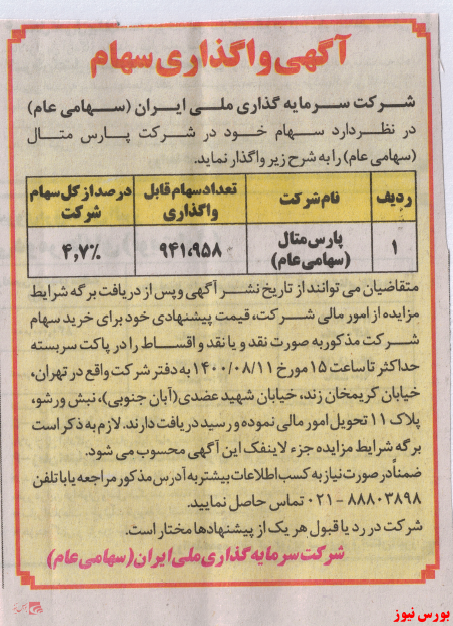 آگهی واگذاری سهام
شرکت سرمایه گذاری ملی ایران (سهامی عام)
در نظر دارد سهام خود در شرکت پارس متال
(سهامی عام) را به شرح زیر واگذار نماید.
ردیف نام شرکت تعداد سهام قابل واگذاری درصد از کل سهام شرکت
۱ پارس متال (سهامی عام) ۹۴۱،۹۵۸ ۴٫۷٪
متقاضیان می توانند از تاریخ نشر آگهی و پس از دریافت برگه شرایط
مزایده از امور مالی شرکت، قیمت پیشنهادی خود برای خرید سهام
شرکت مذکور به صورت نقد و یا نقد و اقساط را در پاکت سربسته
حداکثر تا ساعت ۱۵ مورخ ۱۴۰۰/۰۸/۱۱ به دفتر شرکت واقع در تهران،
خیابان کریمخان زند، خیابان شهید عضدی (آبان جنوبی)، نبش ورشو،
پلاک ۱۱ تحویل امور مالی نموده و رسید دریافت دارند. لازم به ذکر است
برگه شرایط مزایده جزء لاینفک این آگهی محسوب می شود.
ضمناً در صورت نیاز به کسب اطلاعات بیشتر به آدرس مذکور مراجعه یا با تلفن
۸۸۸۰۳۸۹۸ - ۰۲۱ تماس حاصل نمایید.
شرکت در رد یا قبول هر یک از پیشنهادها مختار است.
شرکت سرمایه گذاری ملی ایران (سهامی عام)
بورس نیوز